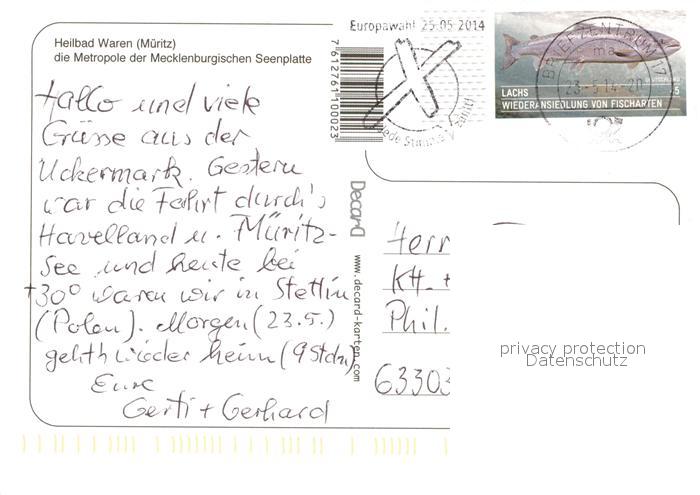 Heilbad Waren (Müritz)
die Metropole der Mecklenburgischen Seenplatte
Hallo und viele
Grüsse aus der
Uckermark. Gestern
war die Fahrt durch's
Havelland u. Müritz-
see und heute bei
+30° waren wir in Stettin
(Polen). Morgen (23.5.)
geht's wieder heim (9 Stdn)
Eure
Gerti + Gerhard
7612761100023
Decard
www.decard-karten.com
Europawahl 25.05.2014
Jede Stimme zählt!
BRIEFZENTRUM 17
ma
23.5.14-20
LACHS
WIEDERANSIEDLUNG VON FISCHARTEN
Herr
KH.
Phil.
63303
privacy protection
Datenschutz